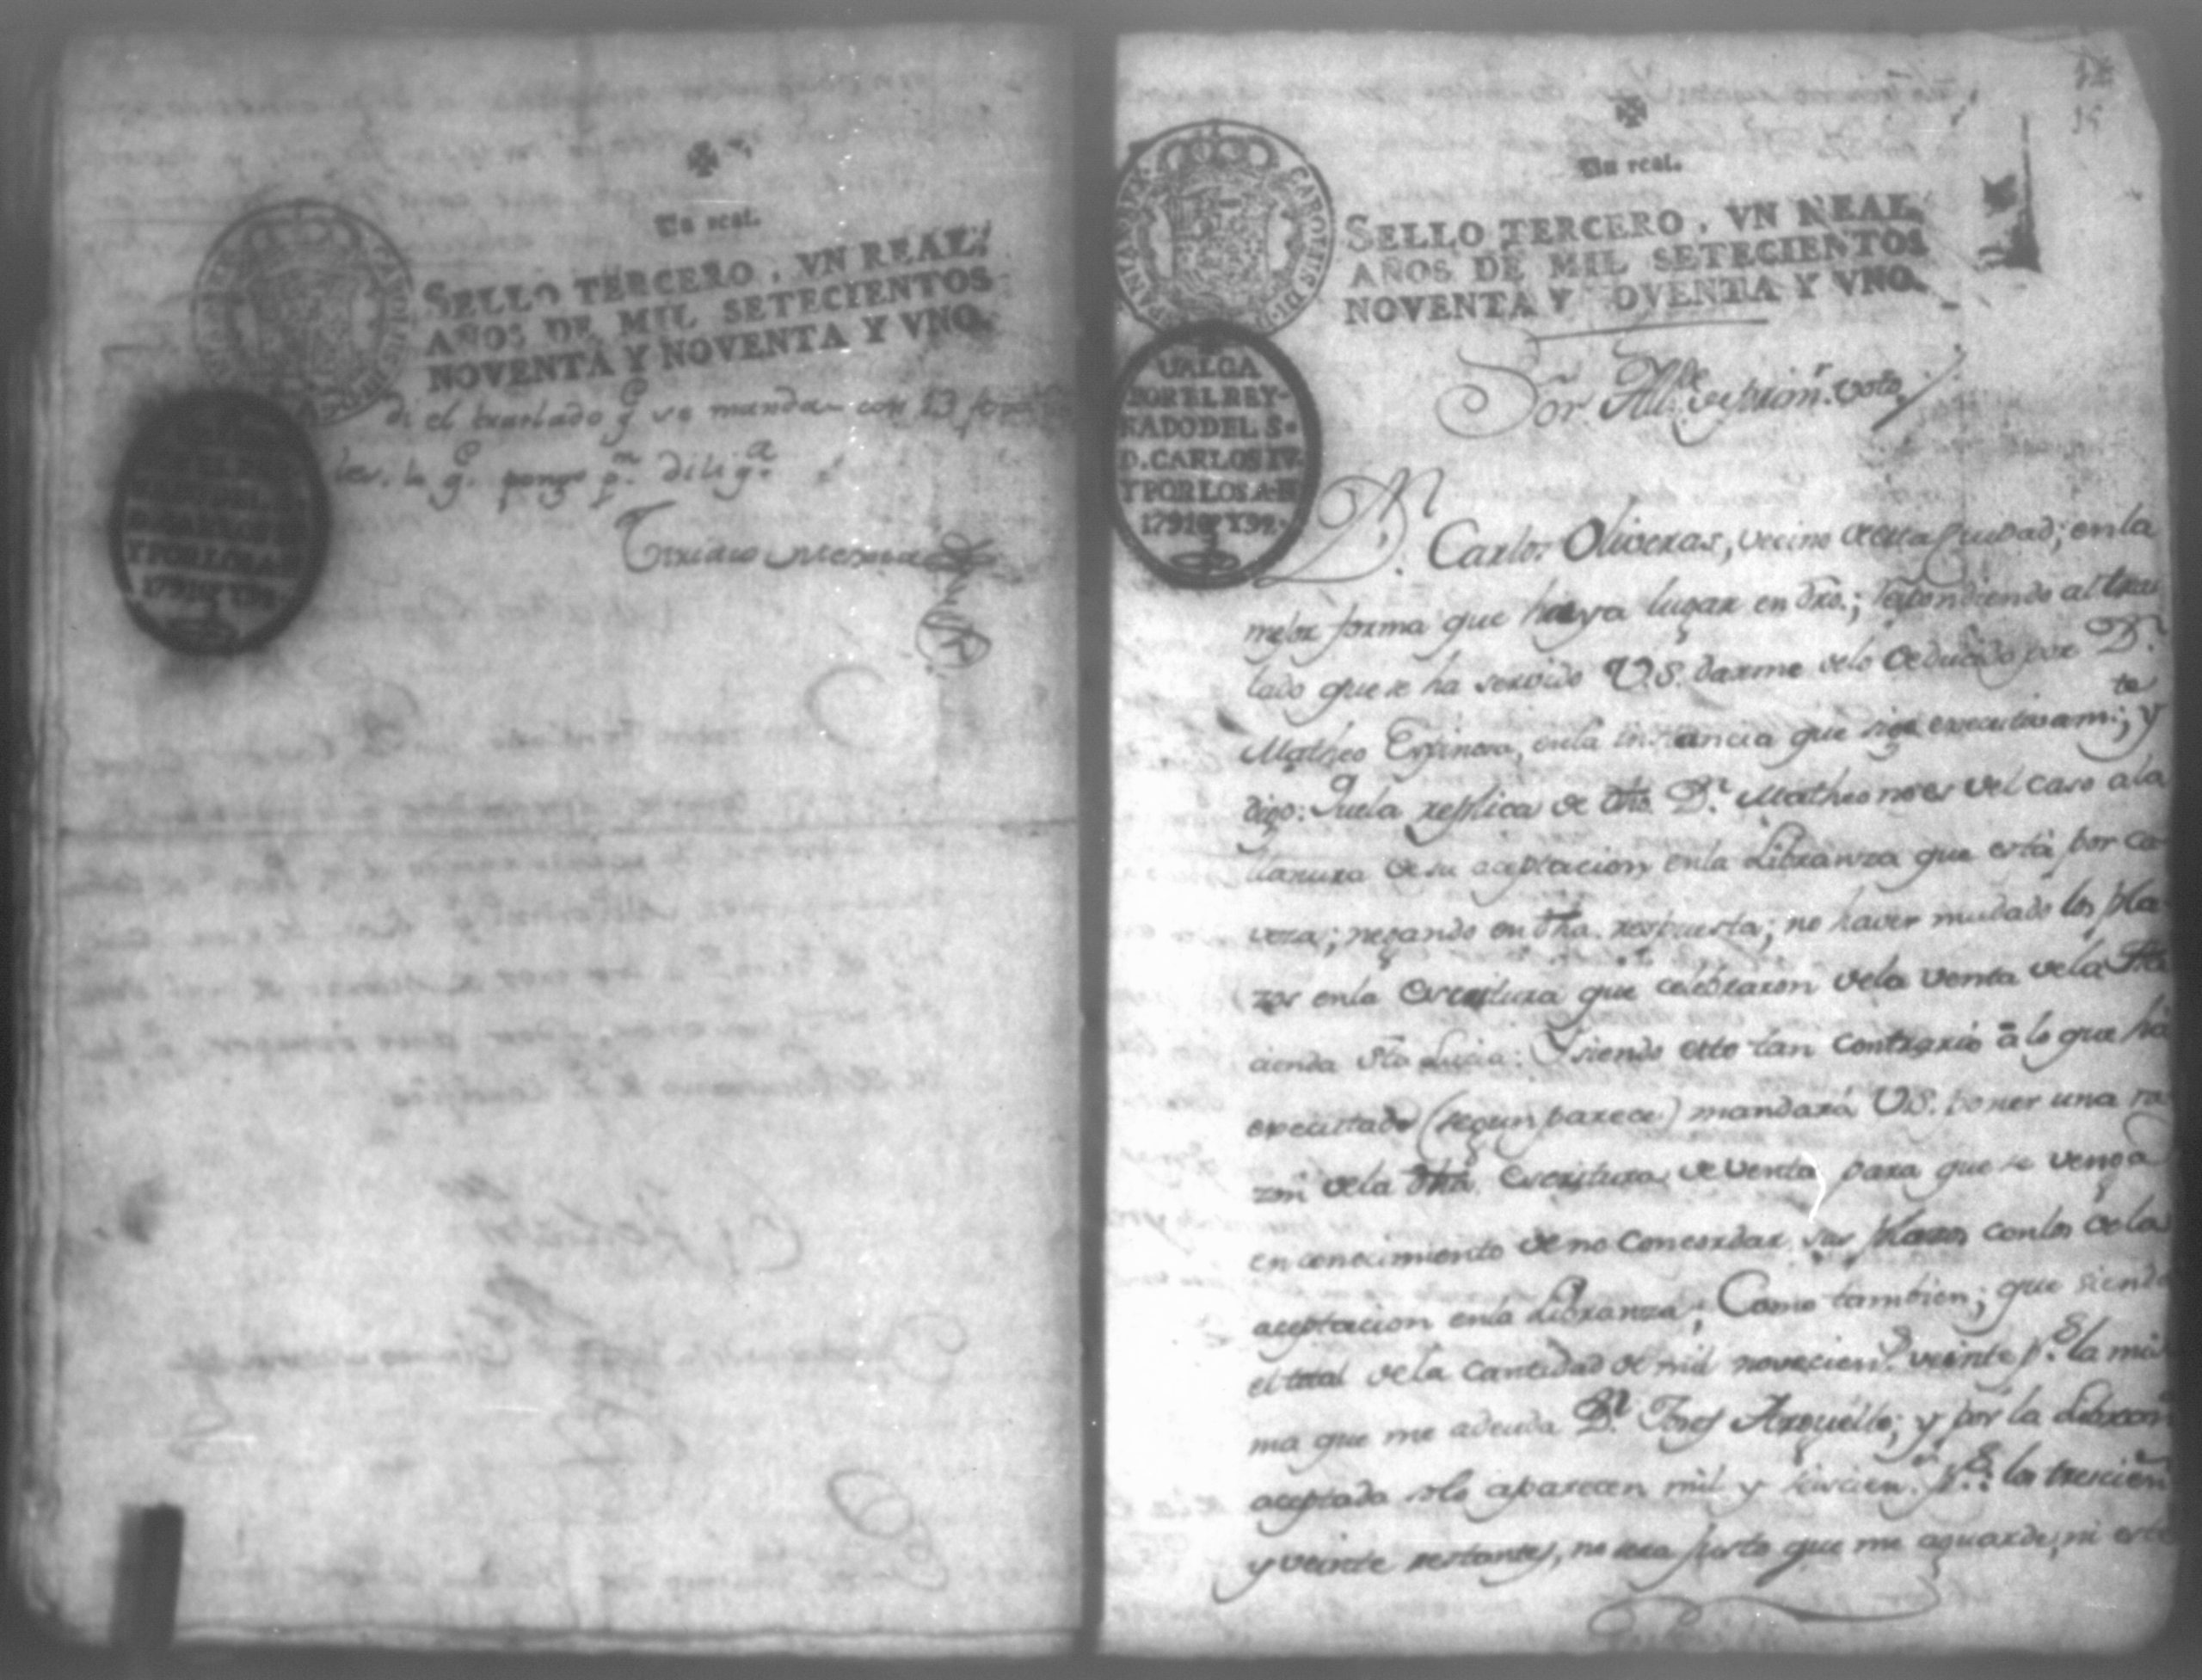 Un real.
SELLO TERCERO, VN REAL,
AÑOS DE MIL SETECIENTOS
NOVENTA Y NOVENTA Y VNO.
di el traslado q.e se manda con 13
q.e pongo p.r dilig.a
Y POR LOS A
Un real.
SELLO TERCERO, VN REAL,
AÑOS DE MIL SETECIENTOS
NOVENTA Y OVENTA Y VNO.
VALGA
POR EL REY-
NADO DEL S.
D. CARLOS IV.
Y POR LOS A.S
1791 Y 92.
Sōr Al.de de prim.r voto
D.n Carlos Oliveras, vecino de esta Ciudad; en la
mejor forma que haya lugar en dro.; respondiendo al tras
lado que se ha servido V.S. darme de lo deducido por D.n
Matheo Espinosa, en la instancia que sigo executivam.te; y
digo: Que la replica de dho. D.n Matheo no es del caso a la
llanura de su aceptacion en la Libranza que está por ca
veza; negando en dha. respuesta; no haver mudado los pla
zos en la Escritura que celebraron de la venta de la Ha
cienda Sta. Lucia: Y siendo esto tan contrario á lo que há
executado (segun parece) mandará V.S. poner una ra
zon de la dha. Escritura de venta para que se venga
en conocimiento de no concordar sus plazos con los de la
aceptacion en la Libranza; Como tambien; que siendo
el total de la cantidad de mil novecien.s veinte p.s la mis
ma que me adeuda D.n Josef Arguello; y por la Libran
aceptada solo aparecen mil y seiscien.s p.s: los trescien
y veinte restantes, no sera justo que me aguarde, ni este